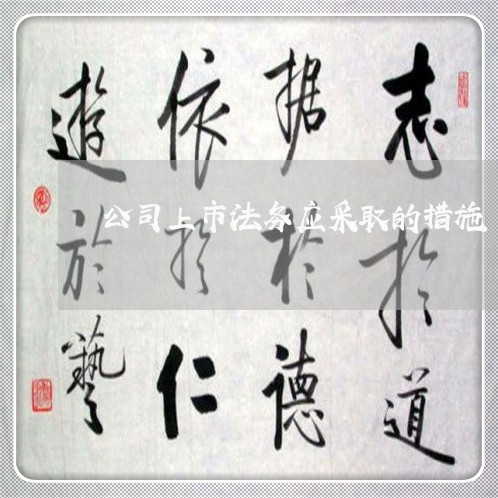 志於道
据於德
依於仁
遊於藝
公司上市法务应采取的措施